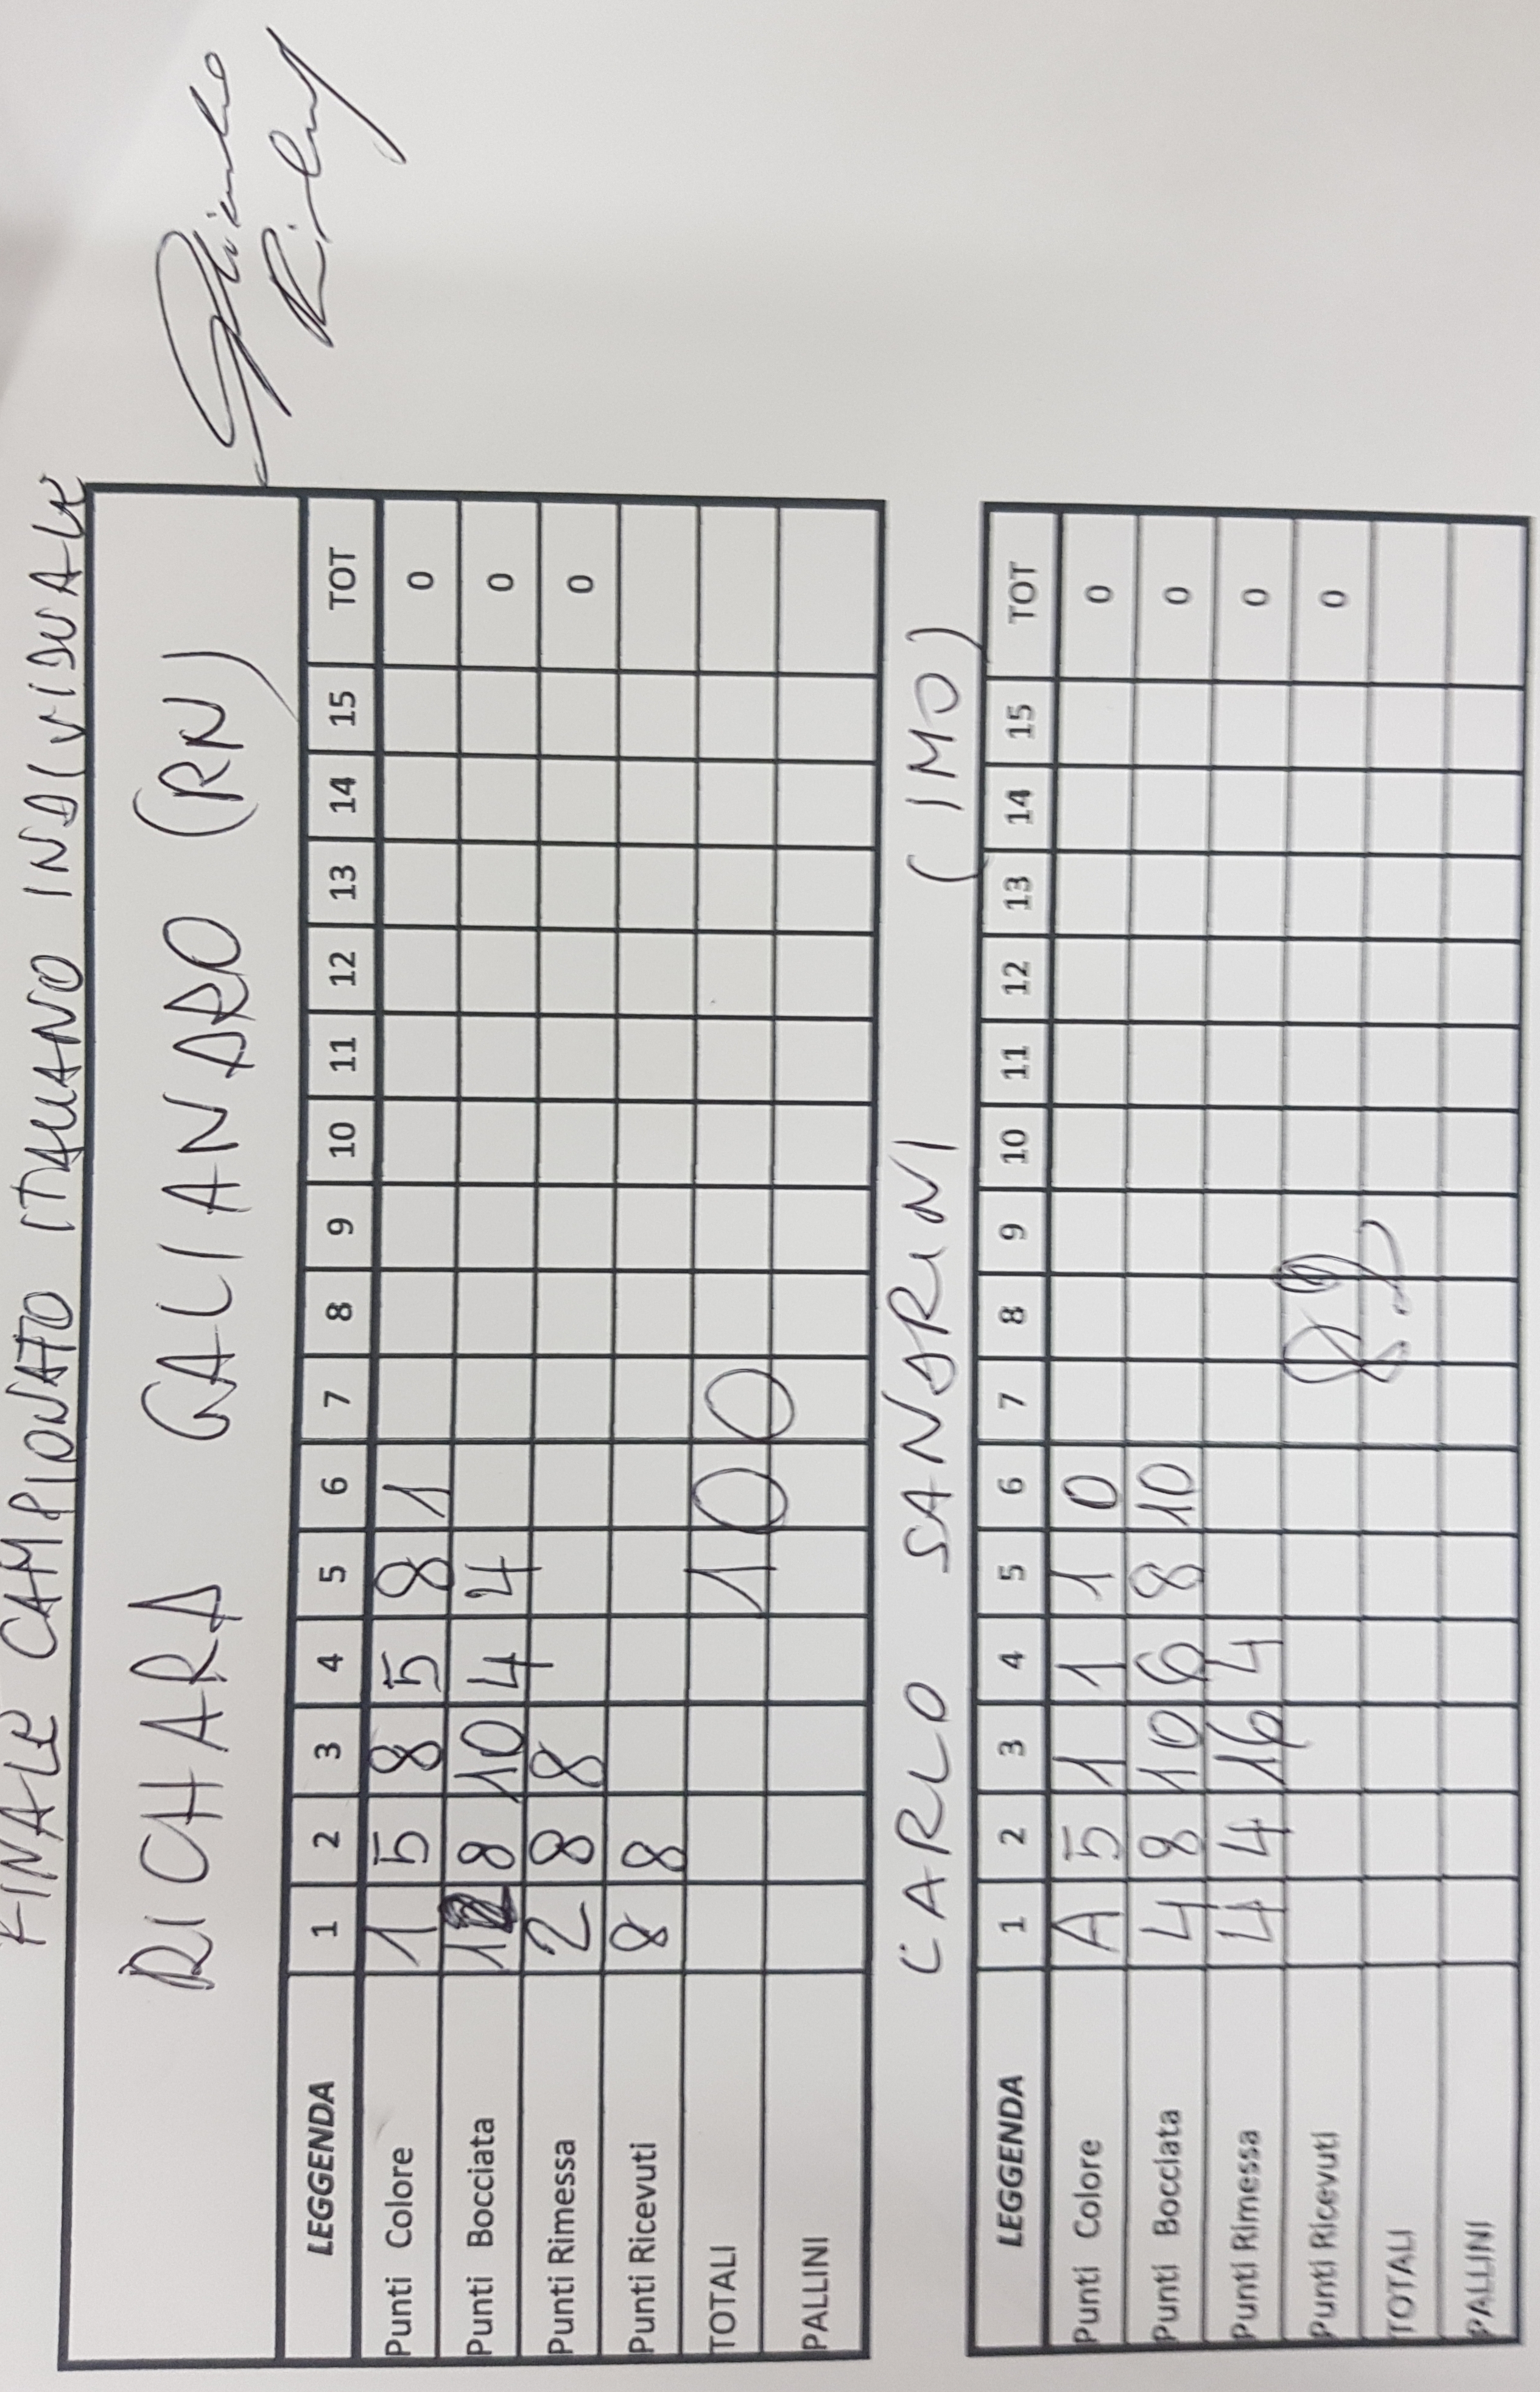 FINALE CAMPIONATO ITALIANO INDIVIDUALE
RICHARD GALIANARO (RN)
LEGGENDA 1 2 3 4 5 6 7 8 9 10 11 12 13 14 15 TOT
Punti Colore 1 5 8 5 8 1 0
Punti Bocciata 8 10 4 4 0
Punti Rimessa 2 8 8 0
Punti Ricevuti 8 8
TOTALI 100
PALLINI
CARLO SANARINI (IMO)
LEGGENDA 1 2 3 4 5 6 7 8 9 10 11 12 13 14 15 TOT
Punti Colore A 5 1 1 1 0 0
Punti Bocciata 4 8 10 6 8 10 0
Punti Rimessa 4 4 16 4 0
Punti Ricevuti 0
TOTALI
PALLINI